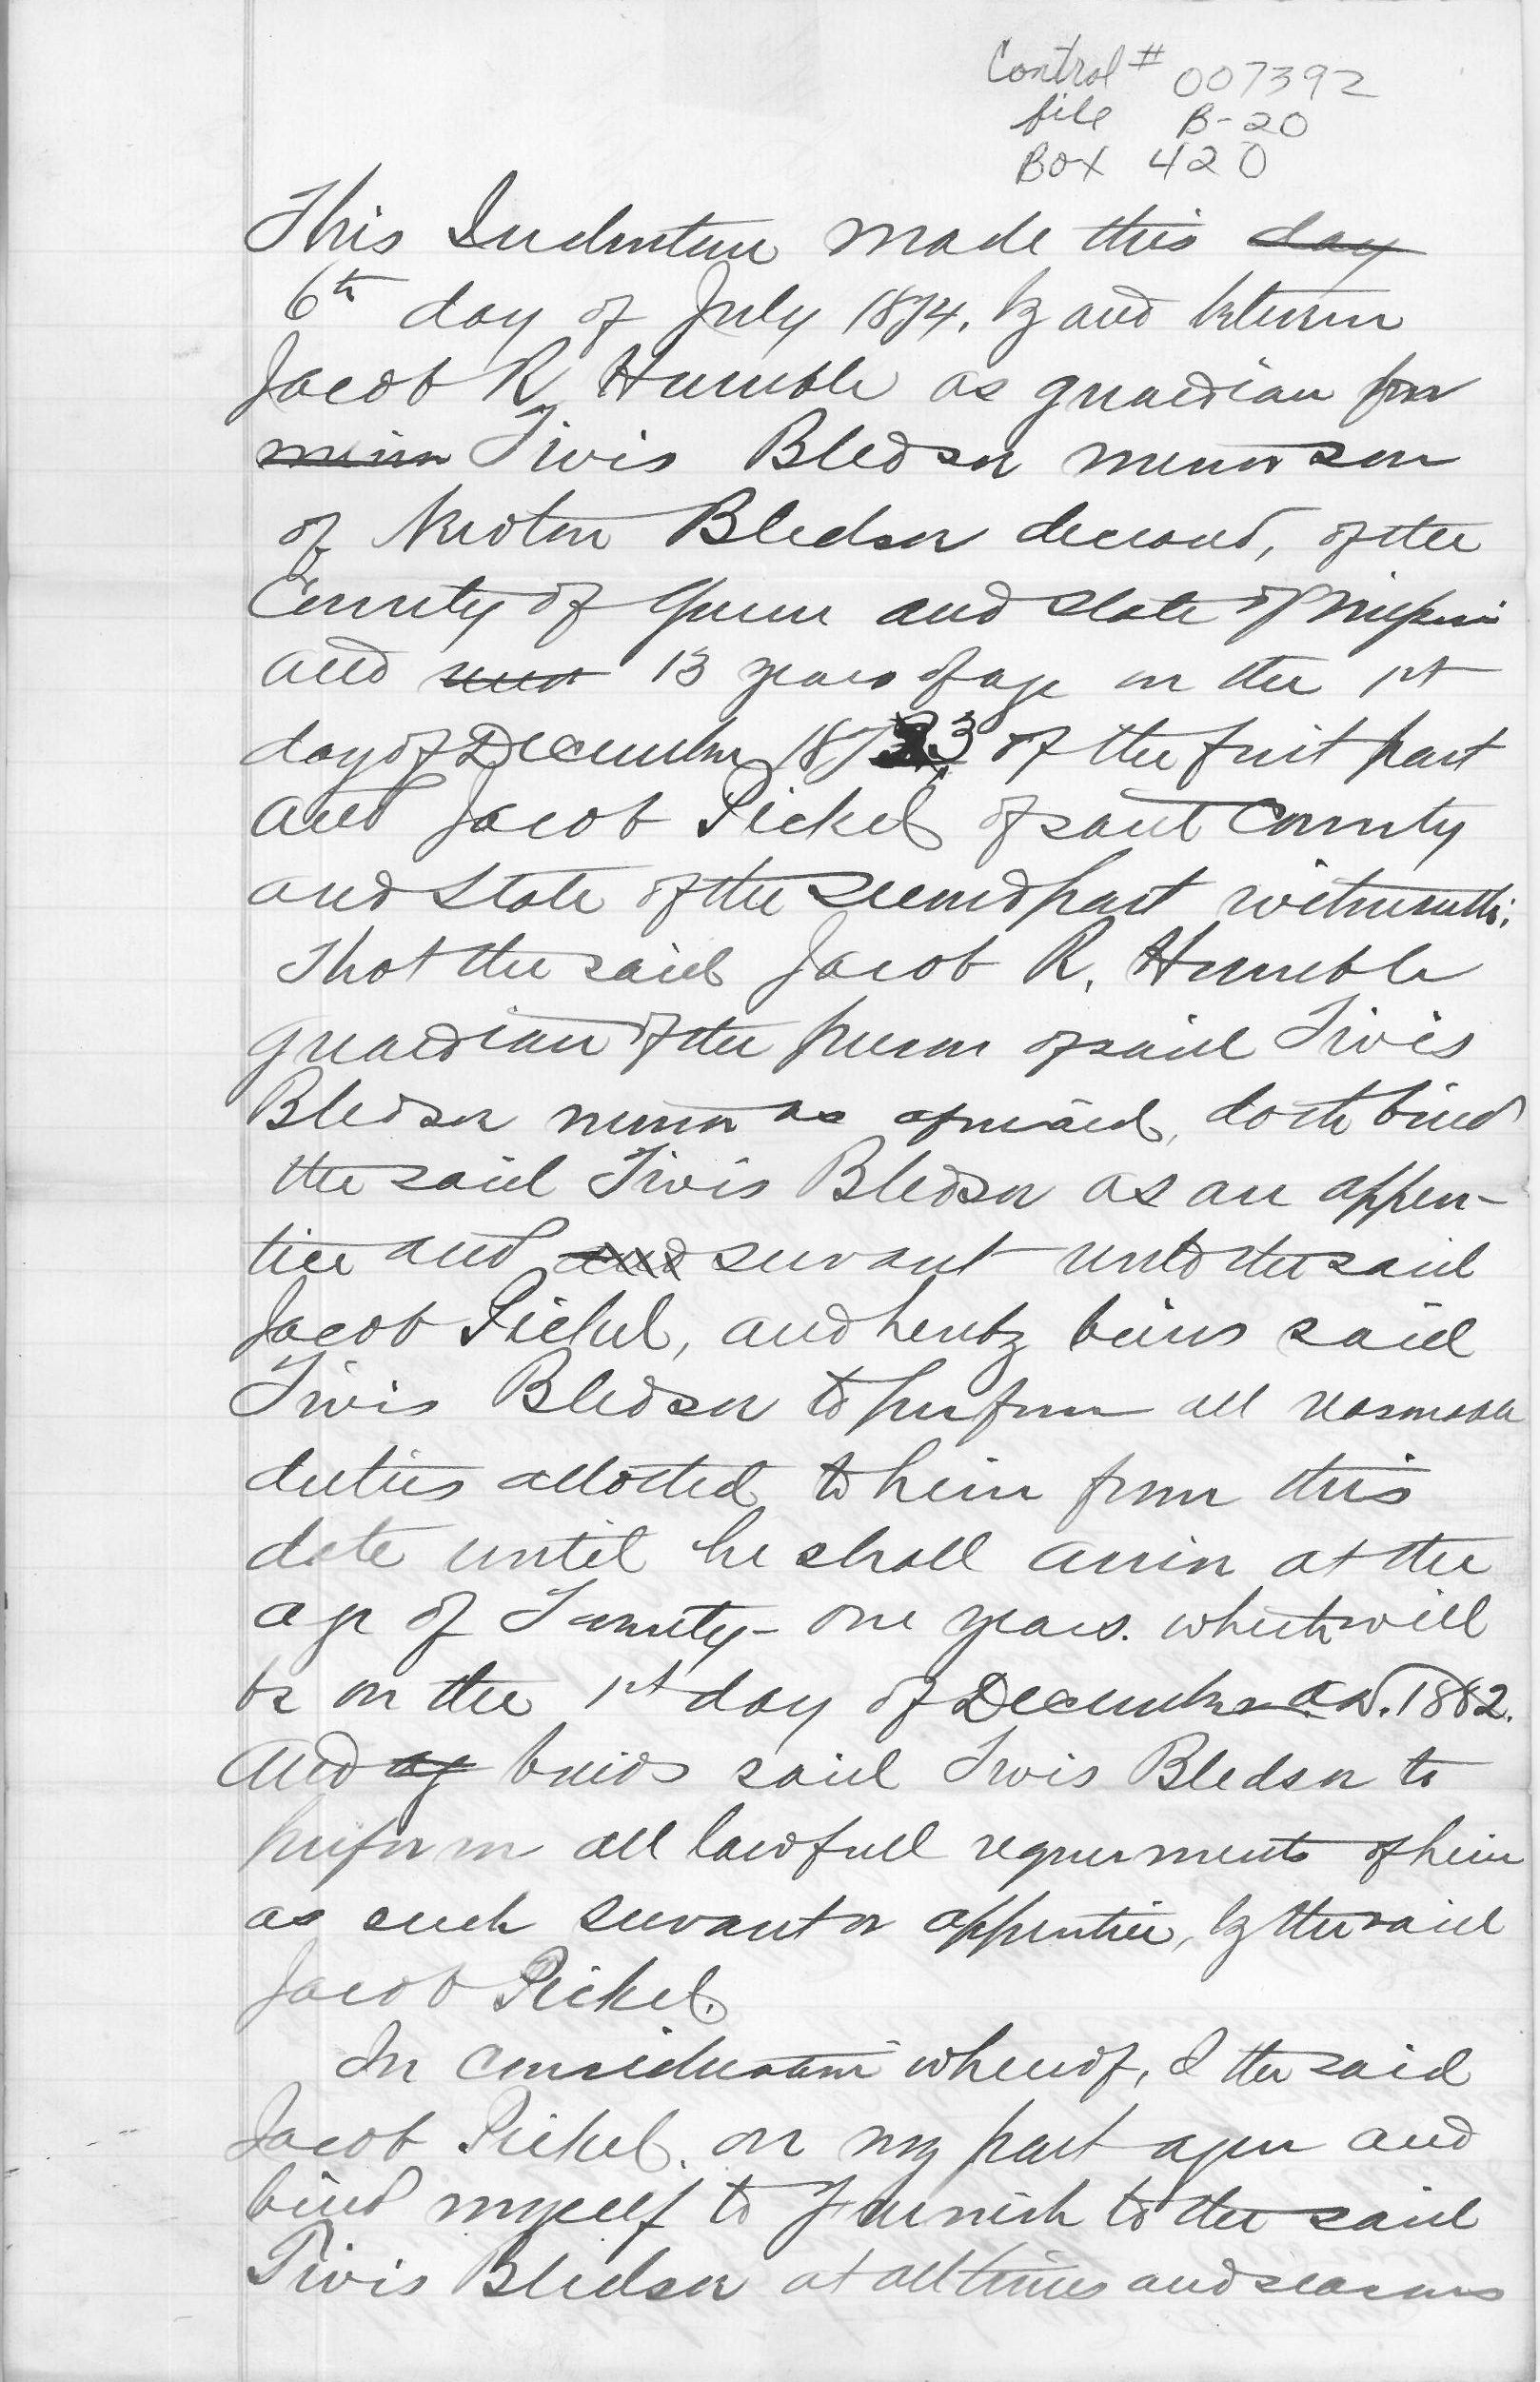 Control # 007392
file B-20
Box 420
This Indenture made this day
6th day of July 1874, by and between
Jacob R Humble as guardian for
minor Tivis Bledsoe minor son
of Newton Bledsoe deceased, of the
County of Greene and State of Missouri
and 13 years of age on the 1st
day of December 1873 of the first part
and Jacob Pickel of said County
and State of the Second part witnesseth:
That the said Jacob R. Humble
guardian of the person of said Tivis
Bledsoe minor as aforesaid, doth bind
the said Tivis Bledsoe as an appren-
tice and and servant unto the said
Jacob Pickel, and hereby binds said
Tivis Bledsoe to perform all reasonable
duties allotted to him from this
date until he shall arrive at the
age of Twenty-one years. which will
be on the 1st day of December A.D. 1882.
And binds said Tivis Bledsoe to
perform all lawfull requirments of him
as such servant or apprentice, by the said
Jacob Pickel.
In consideration whereof, I the said
Jacob Pickel, on my part agree and
bind myself to furnish to the said
Tivis Bledsoe at all times and seasons